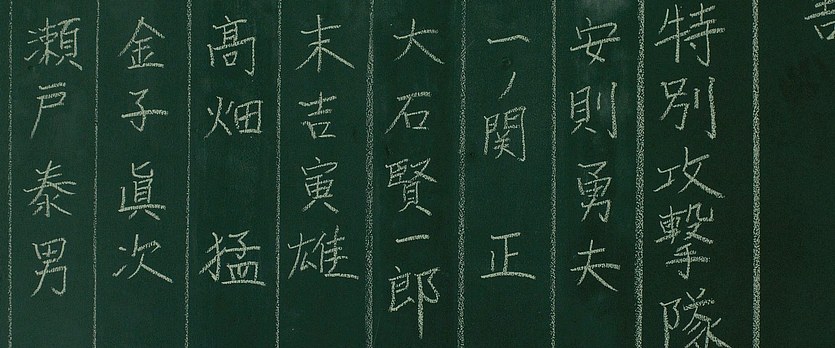 特別攻撃隊
安則勇夫
一ノ関 正
大石賢一郎
末吉寅雄
高畑 猛
金子眞次
瀬戸泰男